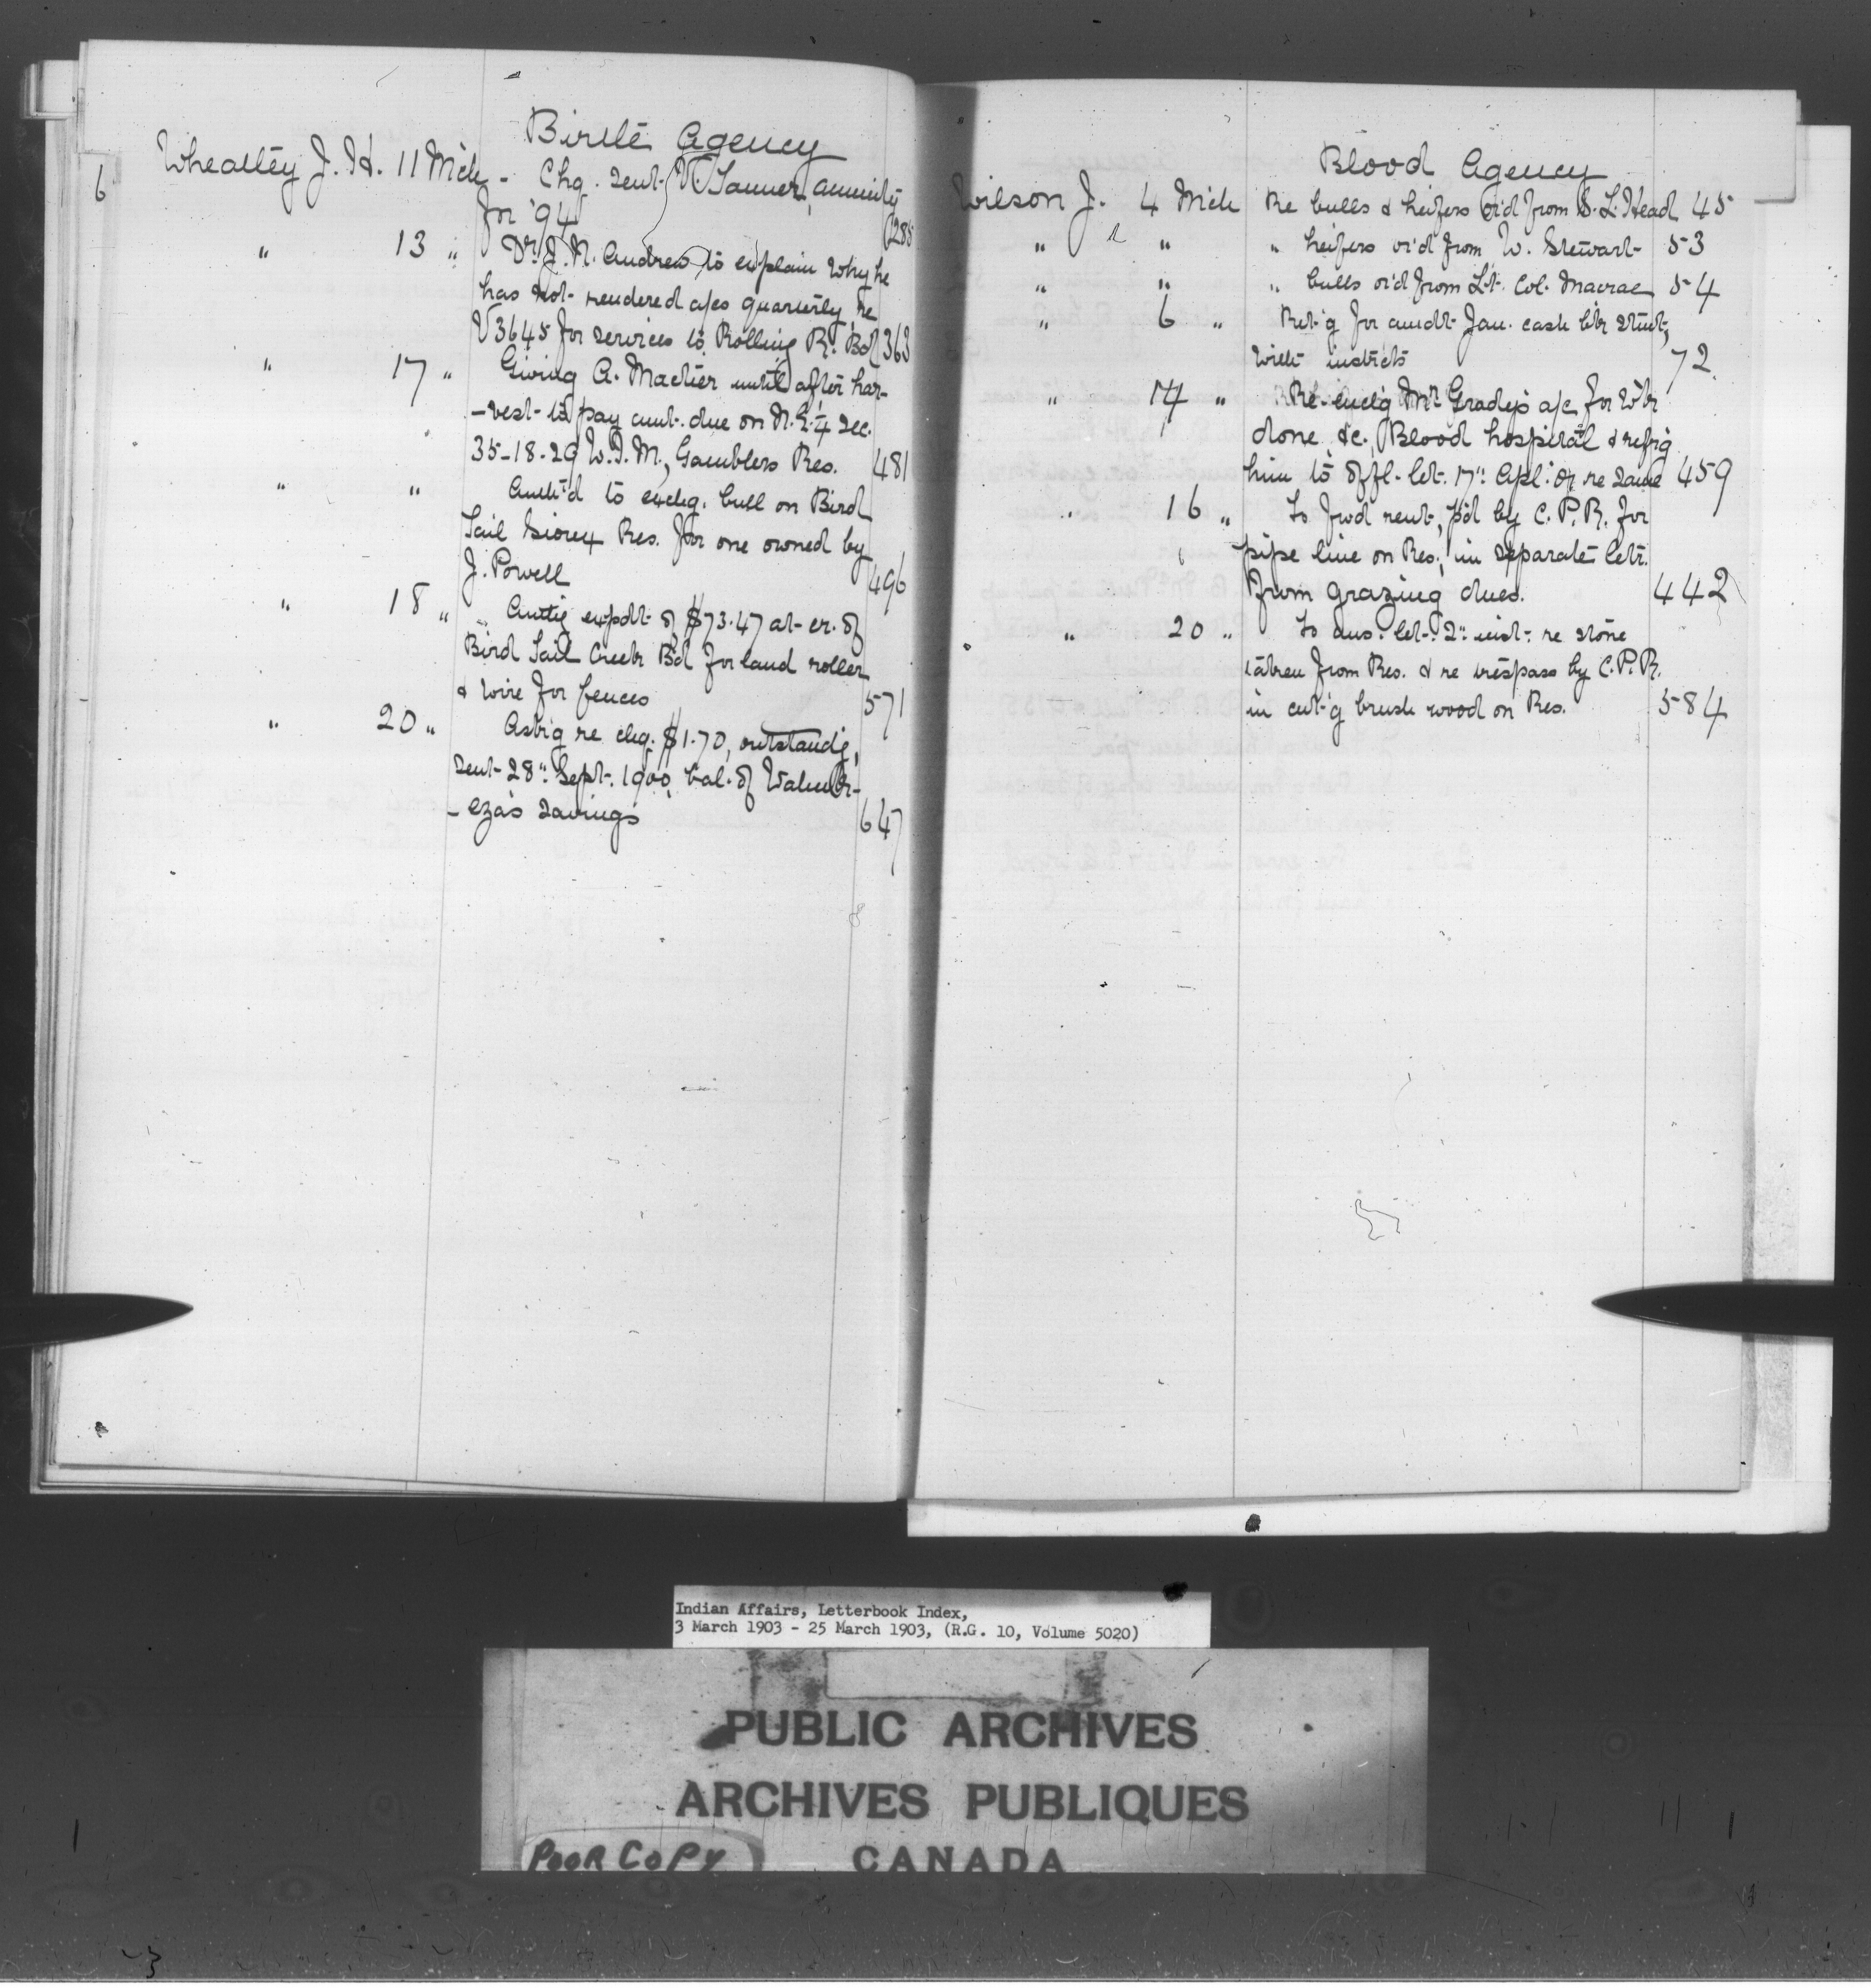 6
Birtle Agency
Wheatley J. H. 11 Mch - Chq. sent V. Tanner, annuity
for '94 285
" 13 " Dr. J. N. Andrew to explain why he
has not rendered a/cs quarterly, re
V3645 for services to Rolling R. Bd 363
" 17 " Giving A. Mactier until after har-
-vest to pay amt. due on N.E. ¼ Sec.
35-18-29 W.I.M., Gamblers Res. 481
" " Auth'd to exchg. bull on Bird
Tail Sioux Res. for one owned by
J. Powell 496
" 18 " Authg expdt of $73.47 at cr. of
Bird Tail Creek Bd for land roller
& wire for fences 571
" 20 " Askg re chq. $1.70, outstandg,
sent 28" Sept. 1900, bal. of
-eza's savings 647
Blood Agency
Wilson J. 4 Mch Re bulls & heifers or'd from S. L. Head 45
" " " heifers or'd from W. Stewart 53
" " " bulls or'd from Lt. Col. Macrae 54
" 6 " Ret'g for amdt Jan. cash bk stmt,
with instrcts 72
" 14 " Re enclg Mr Grady's a/c for w'k
done &c., Blood hospital & refrg
him to offl. let. 17" Apl. 02 re same 459
" 16 " To fwd rent, p'd by C. P. R. for
pipe line on Res., in separate letr.
from grazing dues. 442
" 20 " To ans. let. 2" inst. re stone
taken from Res. & re trespass by C.P.R.
in cut'g brush wood on Res. 584
Indian Affairs, Letterbook Index,
3 March 1903 - 25 March 1903, (R.G. 10, Volume 5020)
PUBLIC ARCHIVES
ARCHIVES PUBLIQUES
POOR COPY
CANADA